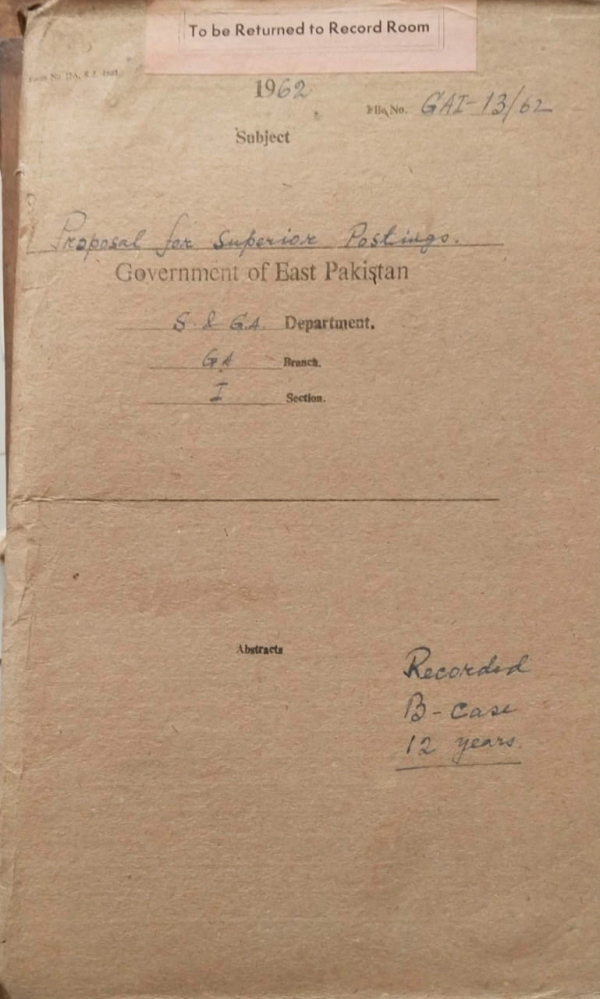 To be Returned to Record Room
1962
File No. GAI-13/62
Subject
Proposal for Superior Postings.
Government of East Pakistan
S & GA. Department.
GA Branch.
I Section.
Abstracts
Recorded
B-case
12 years.